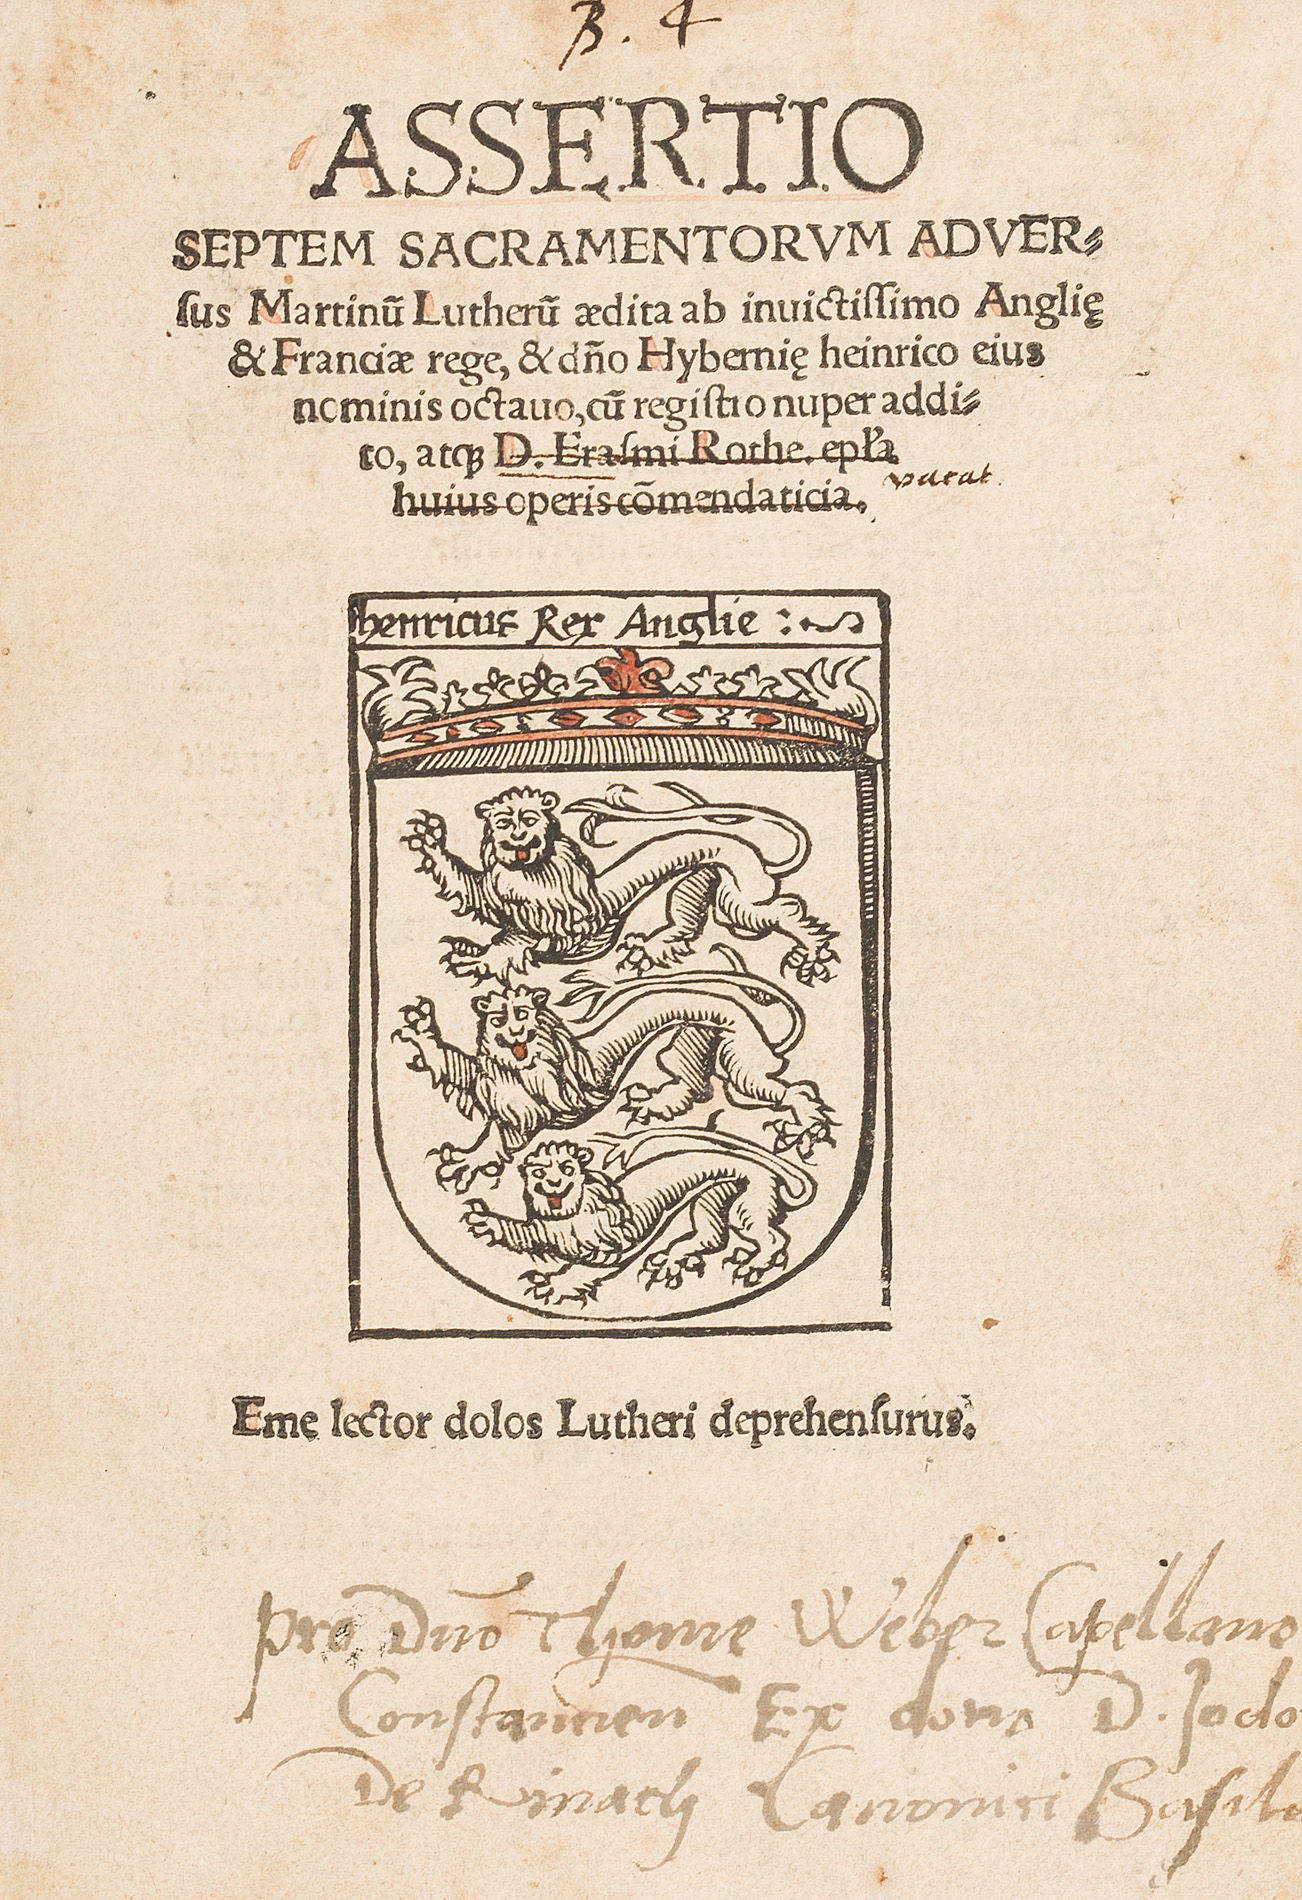 B. 4
ASSERTIO
SEPTEM SACRAMENTORVM ADVER⸗
ſus Martinū Lutherū ædita ab inuictiſſimo Anglię
& Franciæ rege, & dño Hybernię heinrico eius
nominis octauo, cū regiſtro nuper addi⸗
to, atqꝫ D. Eraſmi Rothe. epł'a
vacat.
huius operis cōmendaticia.
henricus Rex Anglie :
Emę lector dolos Lutheri deprehenſurus.
pro Dno Thome Weber Capellano
Constancien Ex dono D. Jodo
De Rinach Canonici Basil